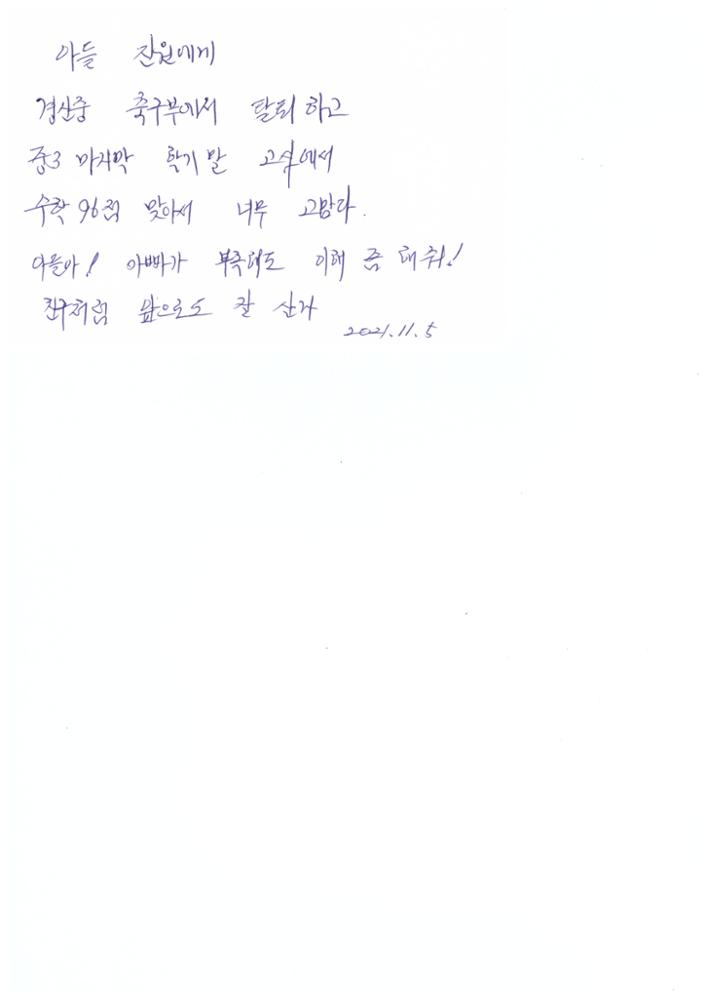 아들 잔원에게
경산중 축구부에서 탈퇴하고
중3 마지막 학기말 고사에서
수학 96점 맞아서 너무 고맙다.
아들아! 아빠가 부족해도 이해 좀 해줘!
친구처럼 앞으로도 잘 살자
2021.11.5